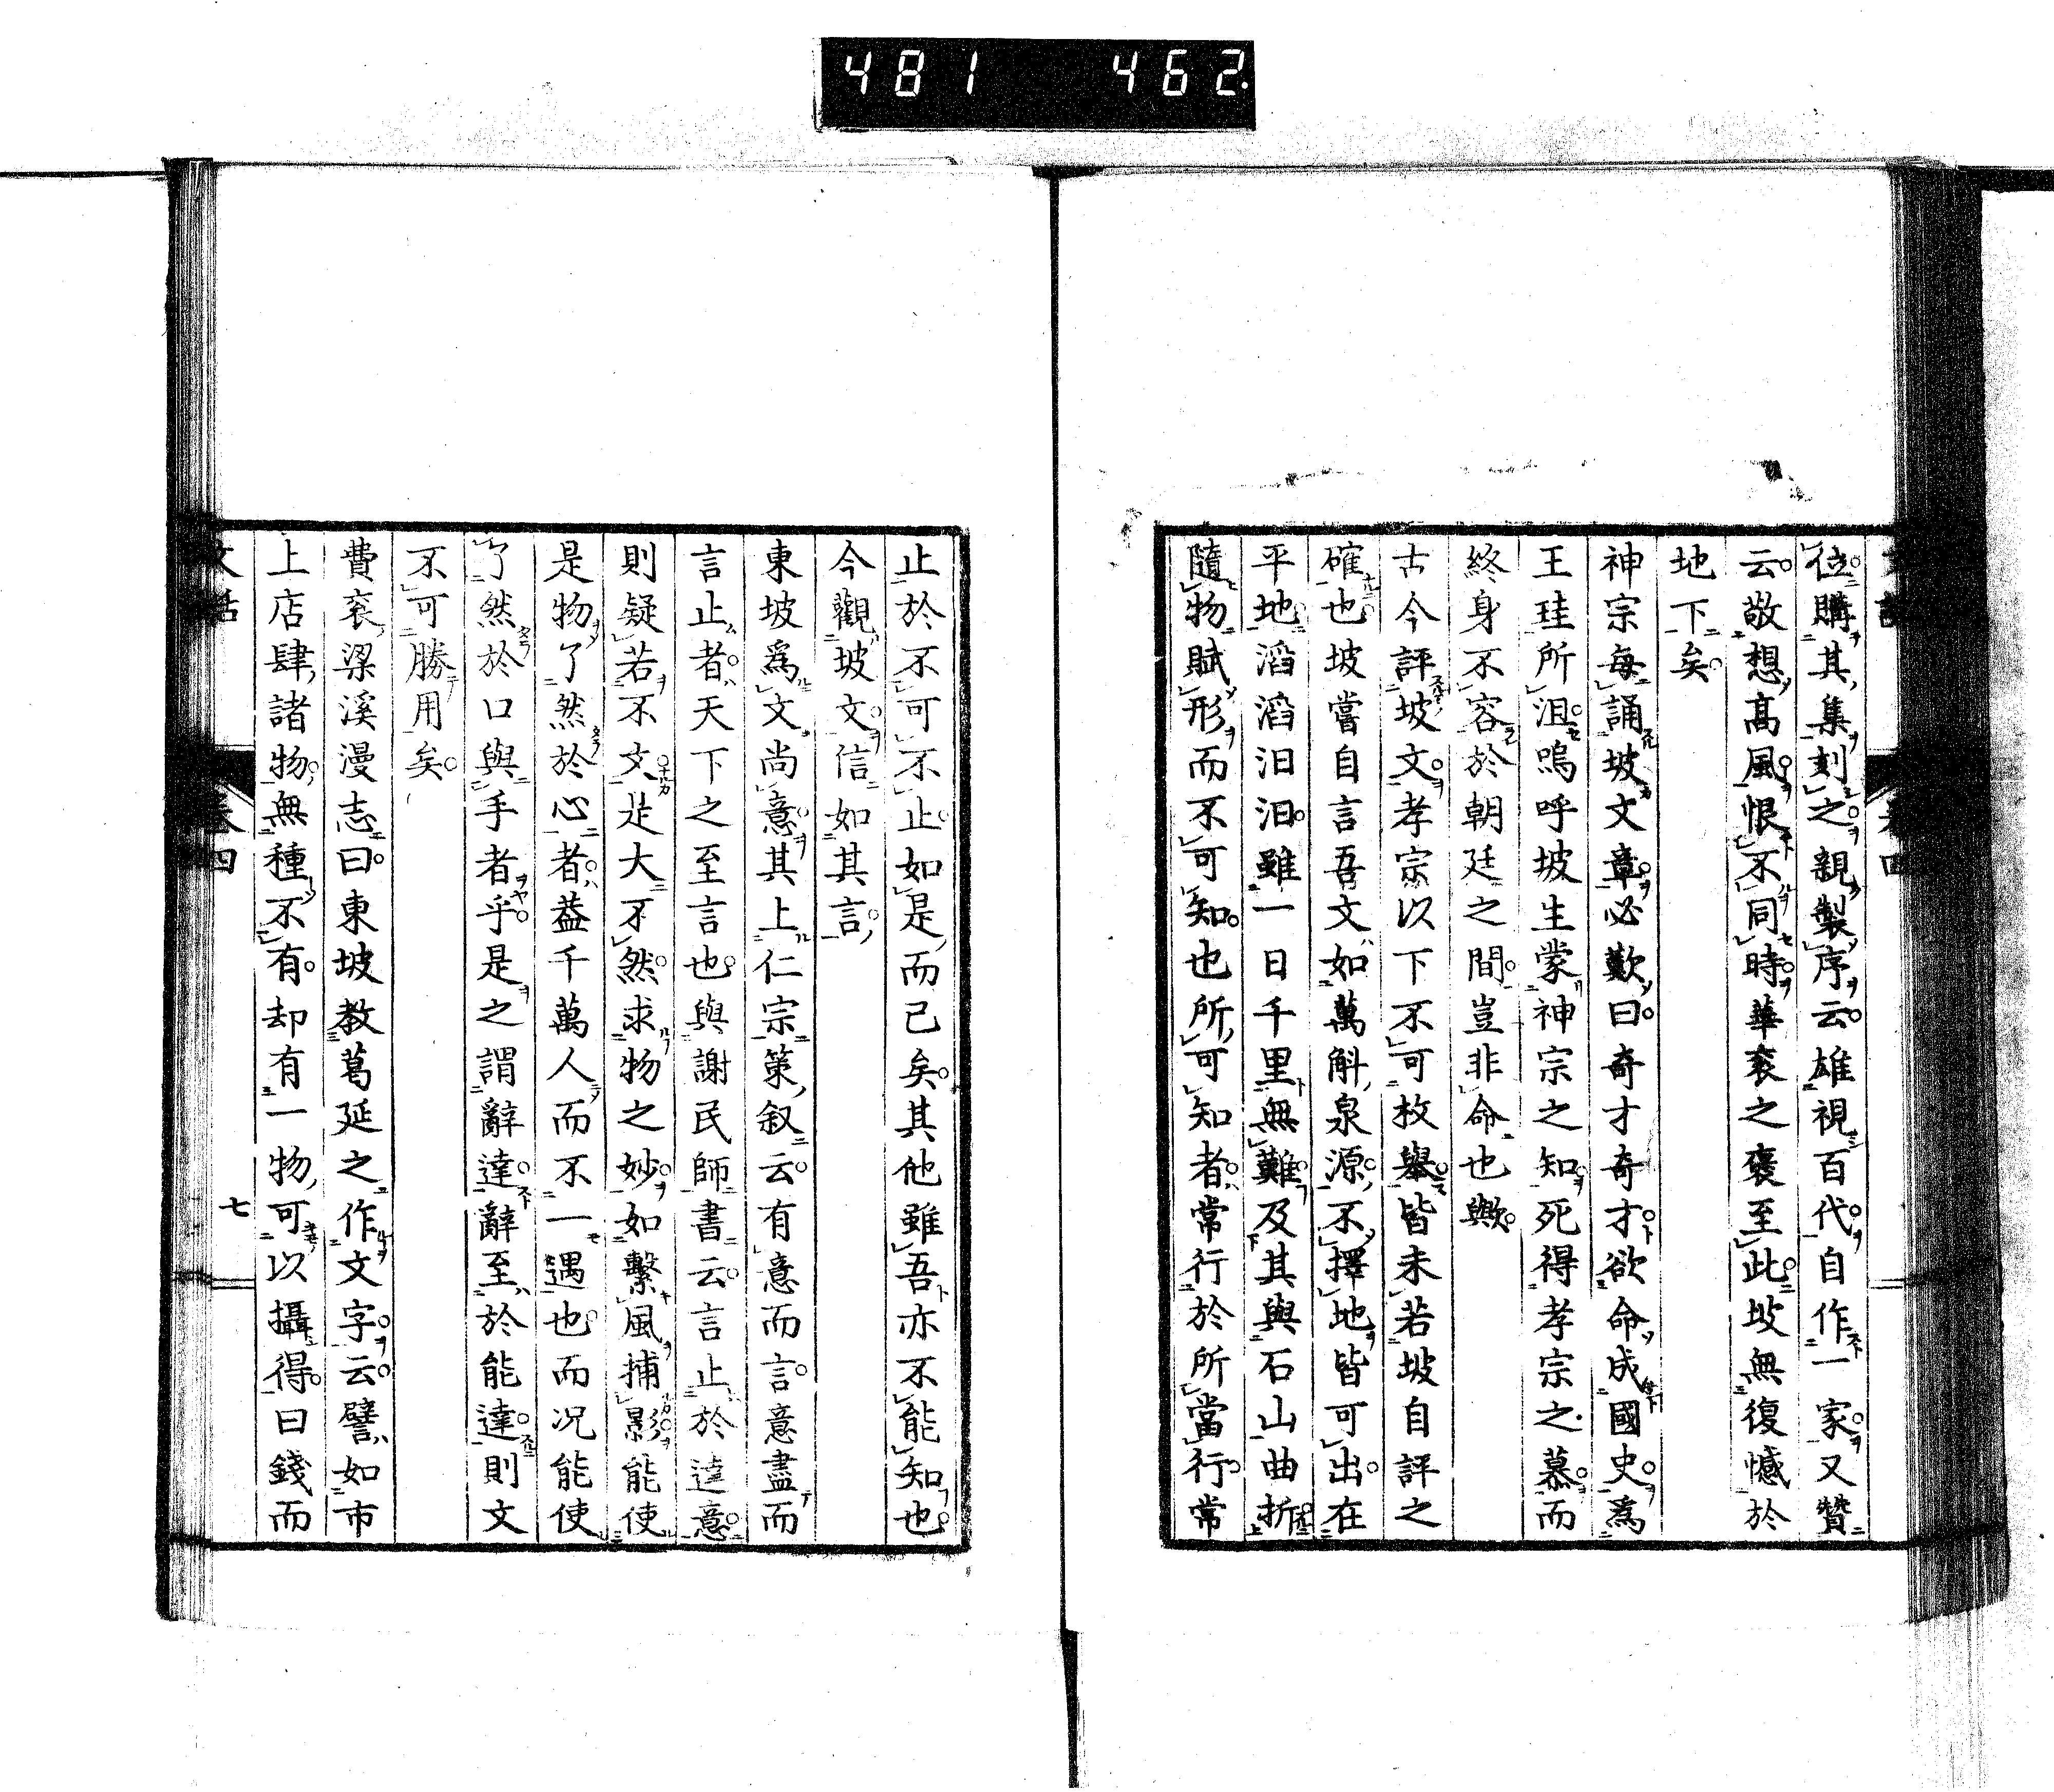 481 462
位購其集刻之親製序云雄視百代自作一家又贊
云敬想高風恨不同時華袞之褒至此坡無復憾於
地下矣
神宗每誦坡文章必歎曰奇才奇才欲命成國史爲
王珪所沮嗚呼坡生蒙神宗之知死得孝宗之慕而
終身不容於朝廷之間豈非命也歟
古今評坡文孝宗以下不可枚舉皆未若坡自評之
確也坡嘗自言吾文如萬斛泉源不擇地皆可出在
平地滔滔汨汨雖一日千里無難及其與石山曲折
隨物賦形而不可知也所可知者常行於所當行常
止於不可不止如是而已矣其他雖吾亦不能知也
今觀坡文信如其言
東坡爲文尚意其上仁宗策叙云有意而言意盡而
言止者天下之至言也與謝民師書云言止於達意
則疑若不文是大不然求物之妙如繫風捕影能使
是物了然於心者蓋千萬人而不一遇也而況能使
了然於口與手者乎是之謂辭達辭至於能達則文
不可勝用矣
費袞梁溪漫志曰東坡教葛延之作文字云譬如市
上店肆諸物無種不有却有一物可以攝得曰錢而
文話 卷四 七